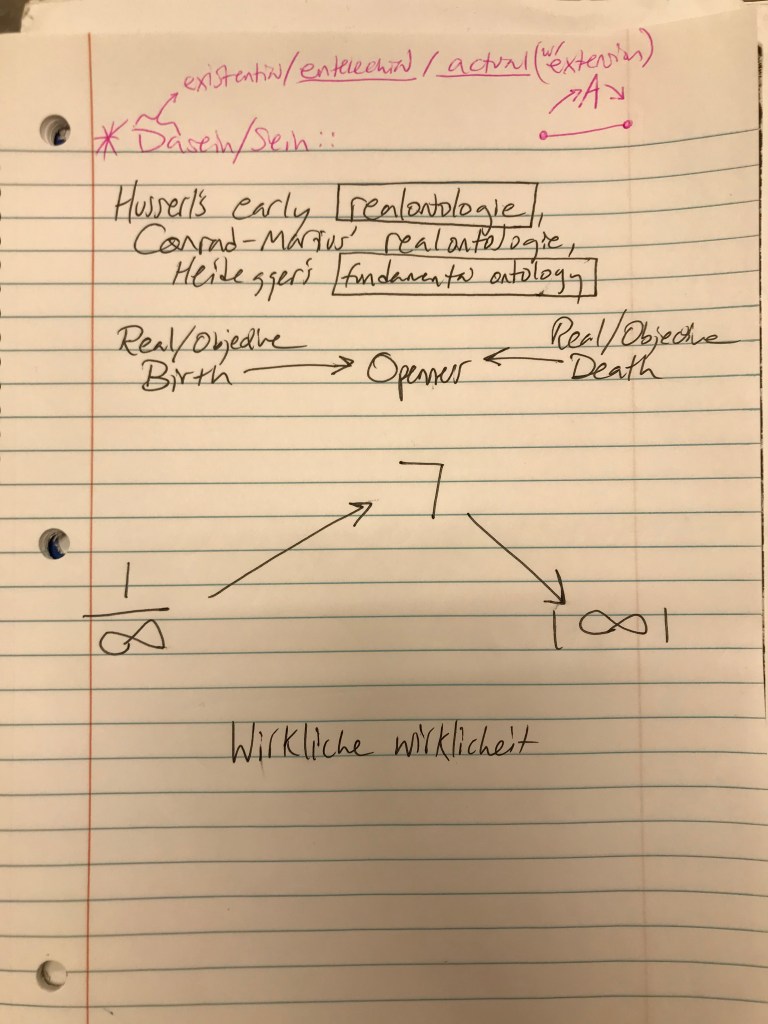 existential/entelechial/actual (w/ extension)
A
* Dasein/Sein::
Husserl's early realontologie,
Conrad-Martius' realontologie,
Heidegger's fundamental ontology
Real/Objective Real/Objective
Birth → Openness ← Death
7
1/∞ |∞|
Wirkliche wirklicheit